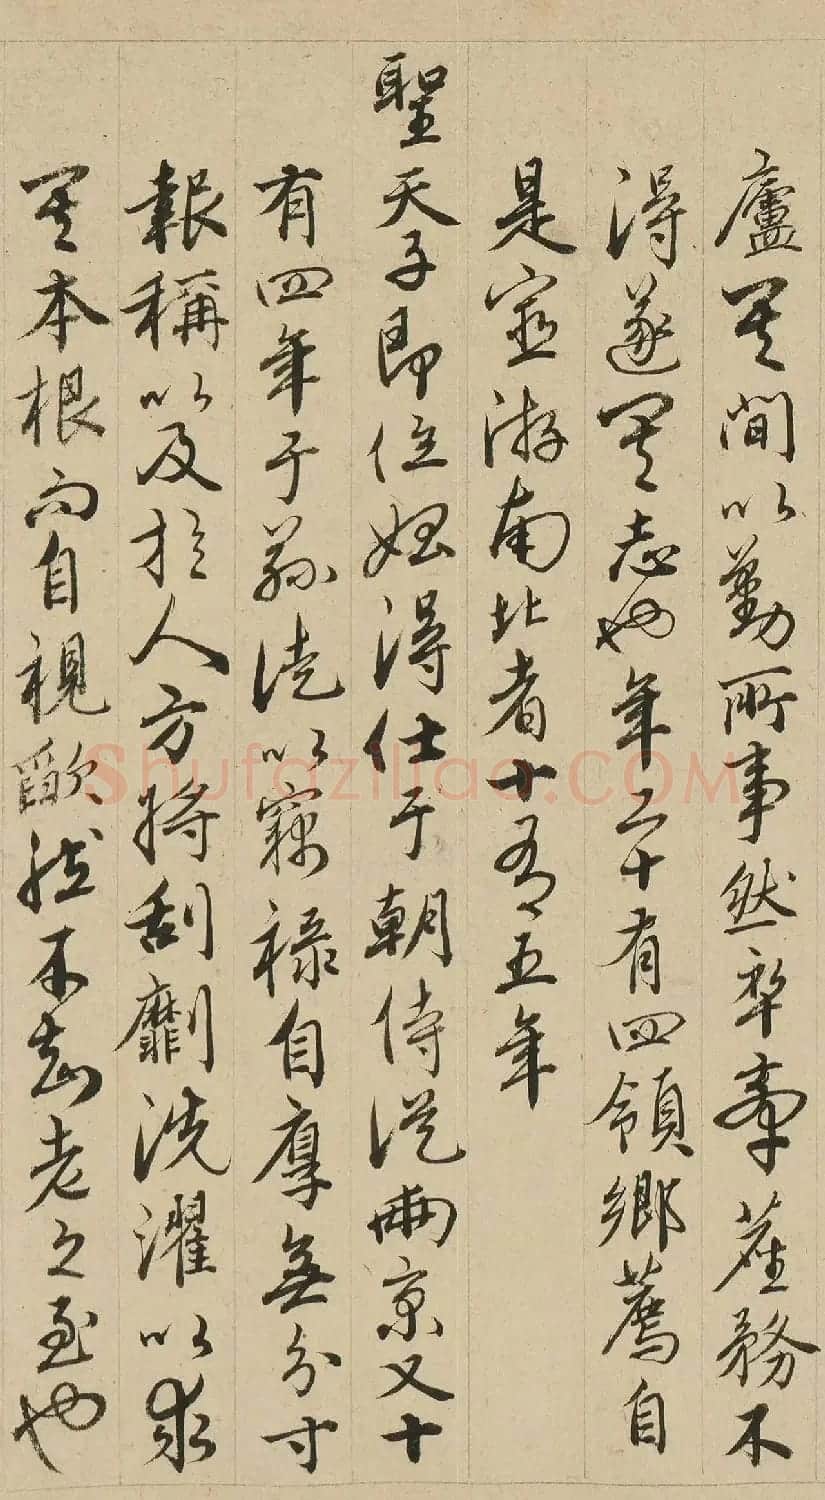 廬其間以勤所事然卒牽塵務不
得遂其志也年二十有四領鄉薦自
是宦游南北者十有五年
聖天子即位始得仕于朝侍從兩京又十
有四年于茲徒以竊祿自辱無分寸
報稱以及於人方將刮劘洗濯以求
其本根而自視欿然不知老之至也
Shufaziliao.COM